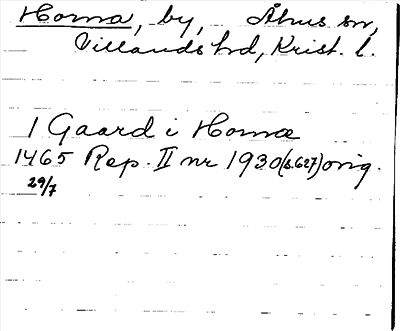 Horna, by, Åhus sn,
Villands hd, Krist. l.
1 Gaard i Hornæ
1465 Rep. II nr 1930 (s. 627) orig.
29/7